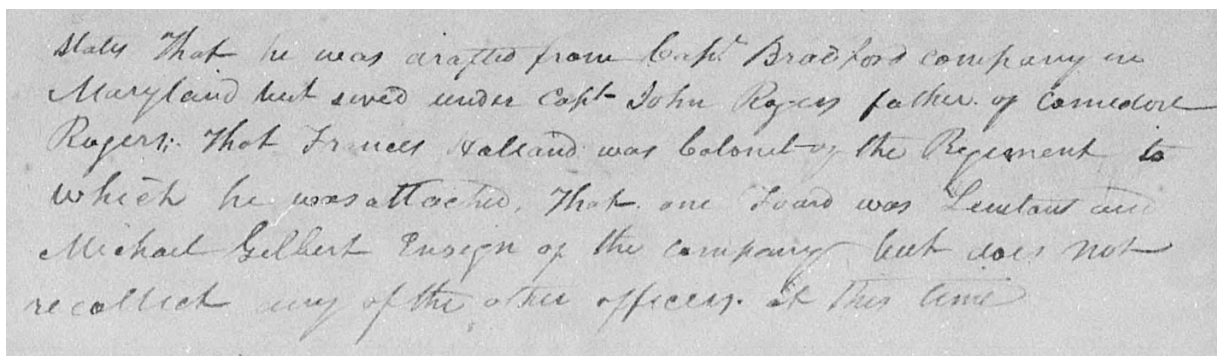 states That he was drafted from Capt Bradford company in
Maryland but served under Capt John Rogers father of Comedore
Rogers; That Frances Holland was Colonel of the Regement to
which he was attached, That one was Leutant and
Michael Gilbert Ensign of the company but does not
recollect any of the other officers at this time